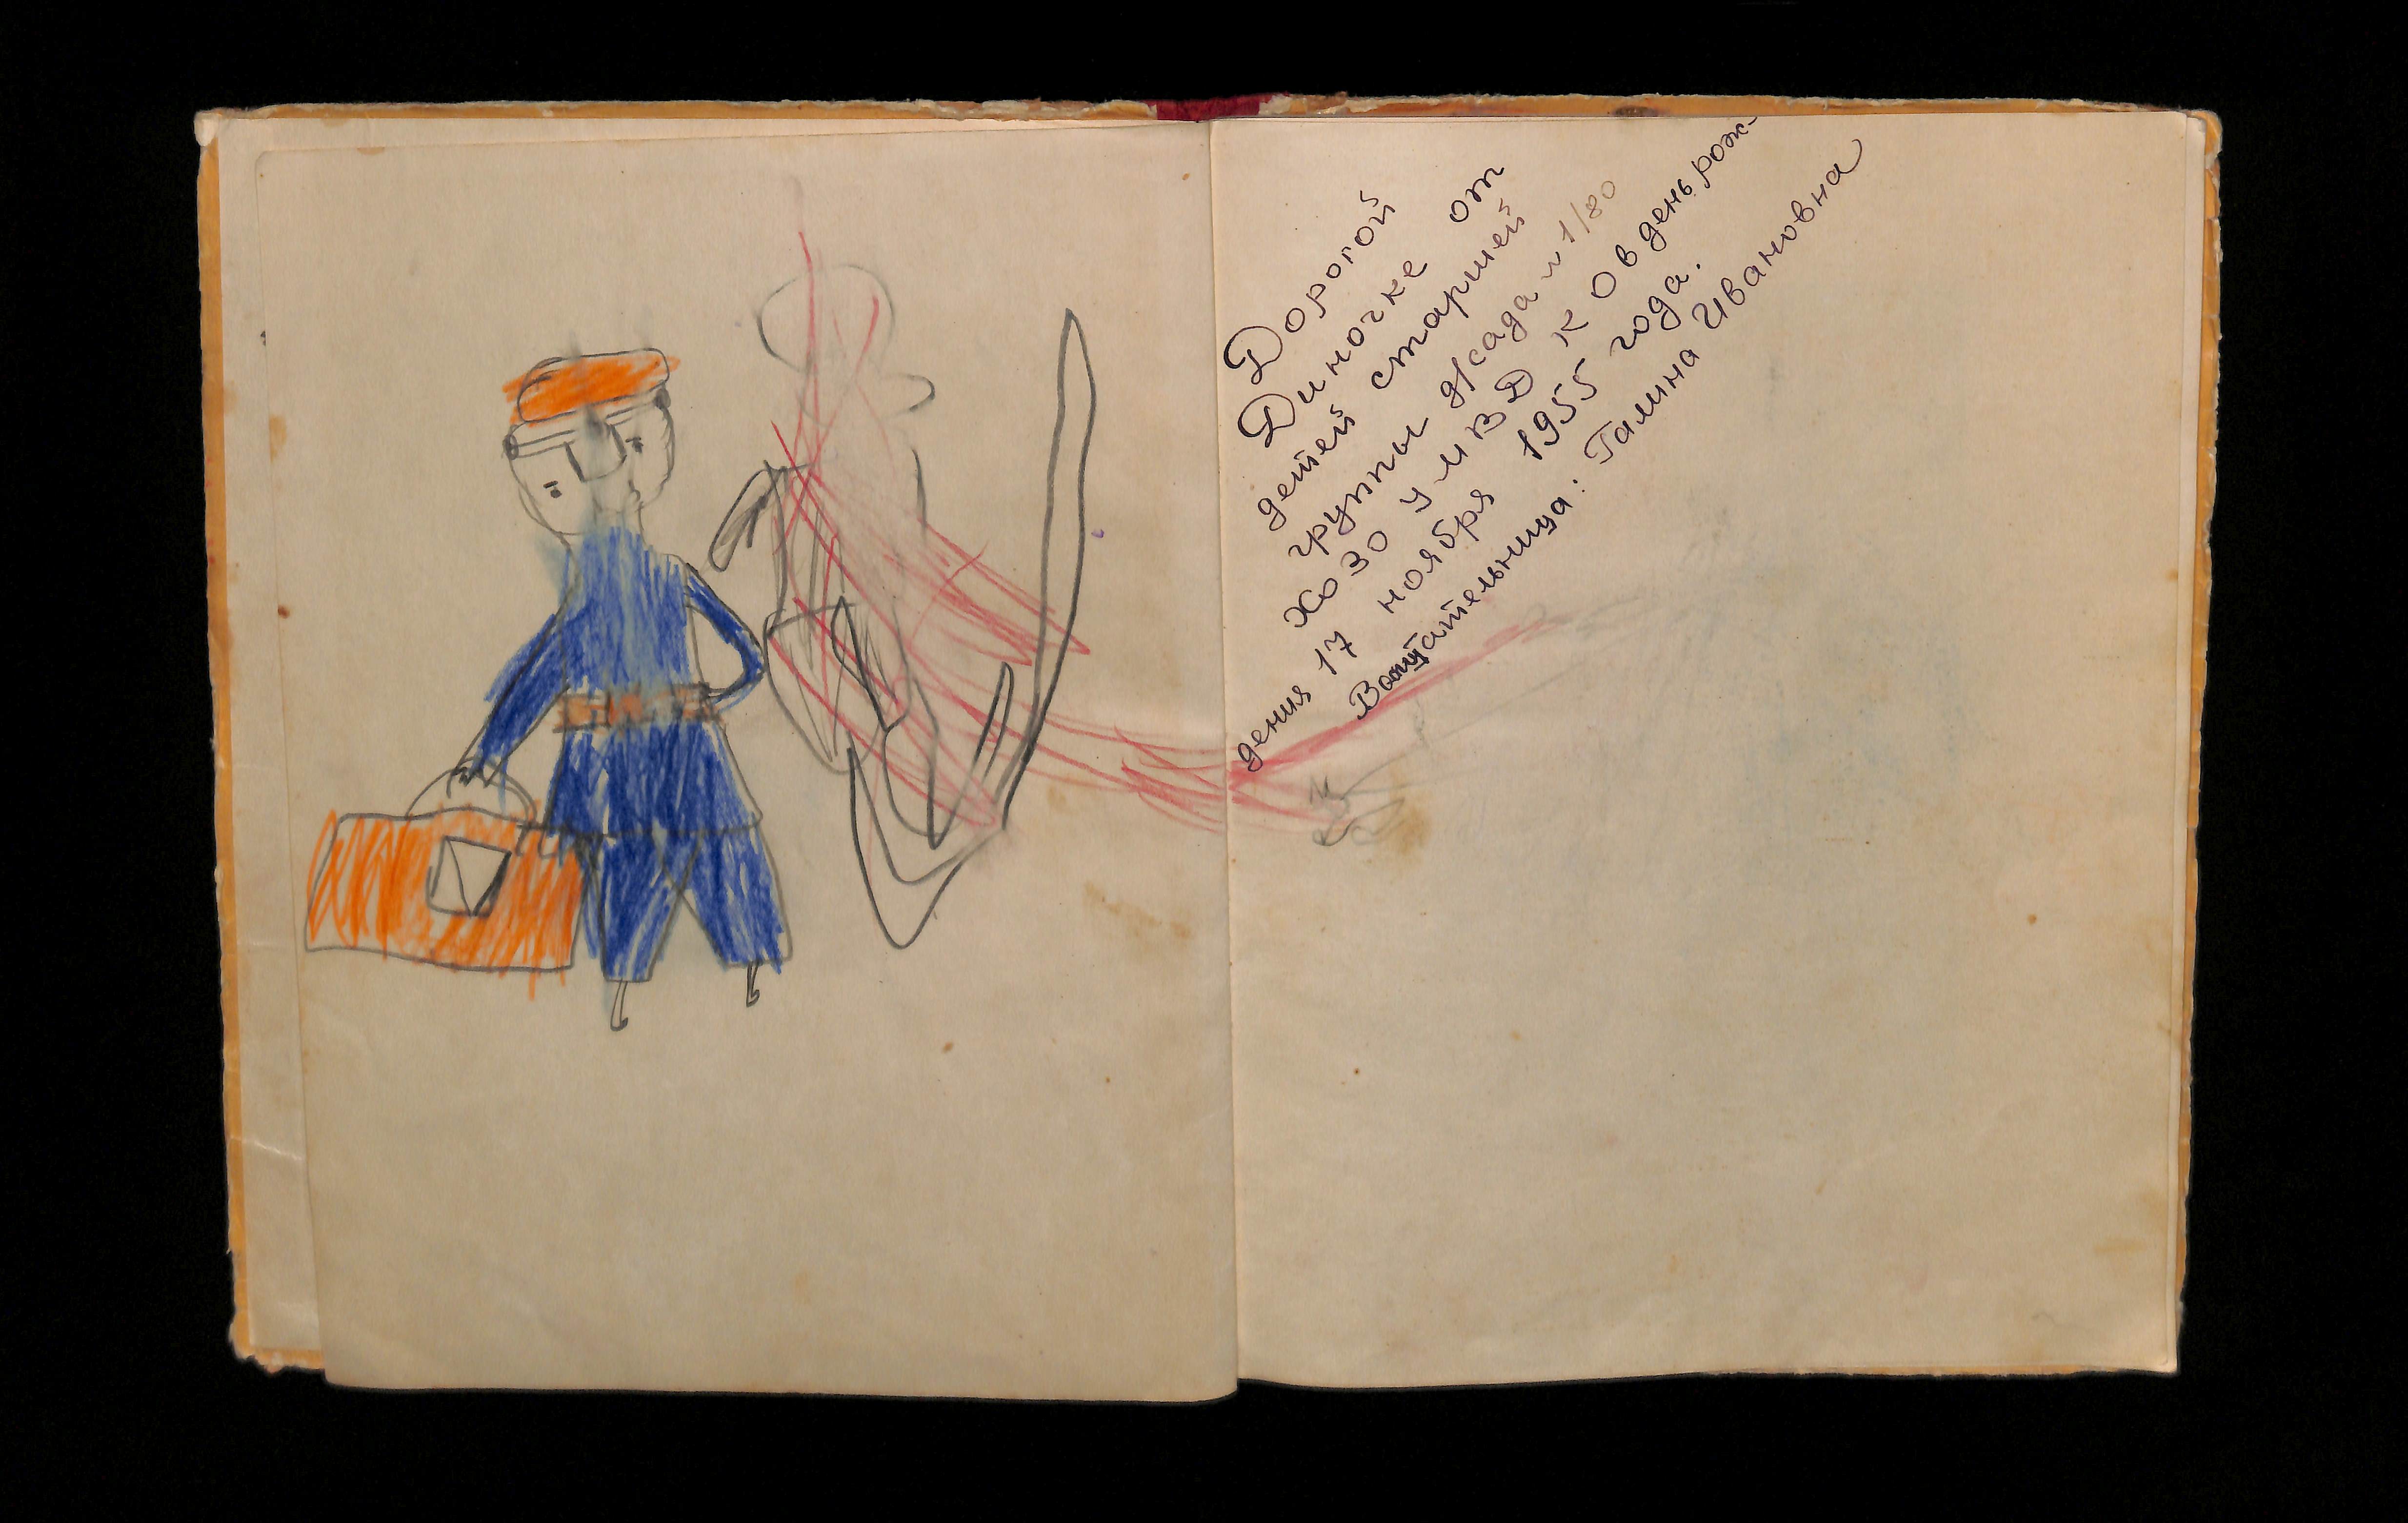 Дорогой
Диночке от
детей старшей
группы д/сада № 1/80
ХОЗО УМВД КО в день рож-
дения 17 ноября 1955 года.
Воспитательница: Галина Ивановна